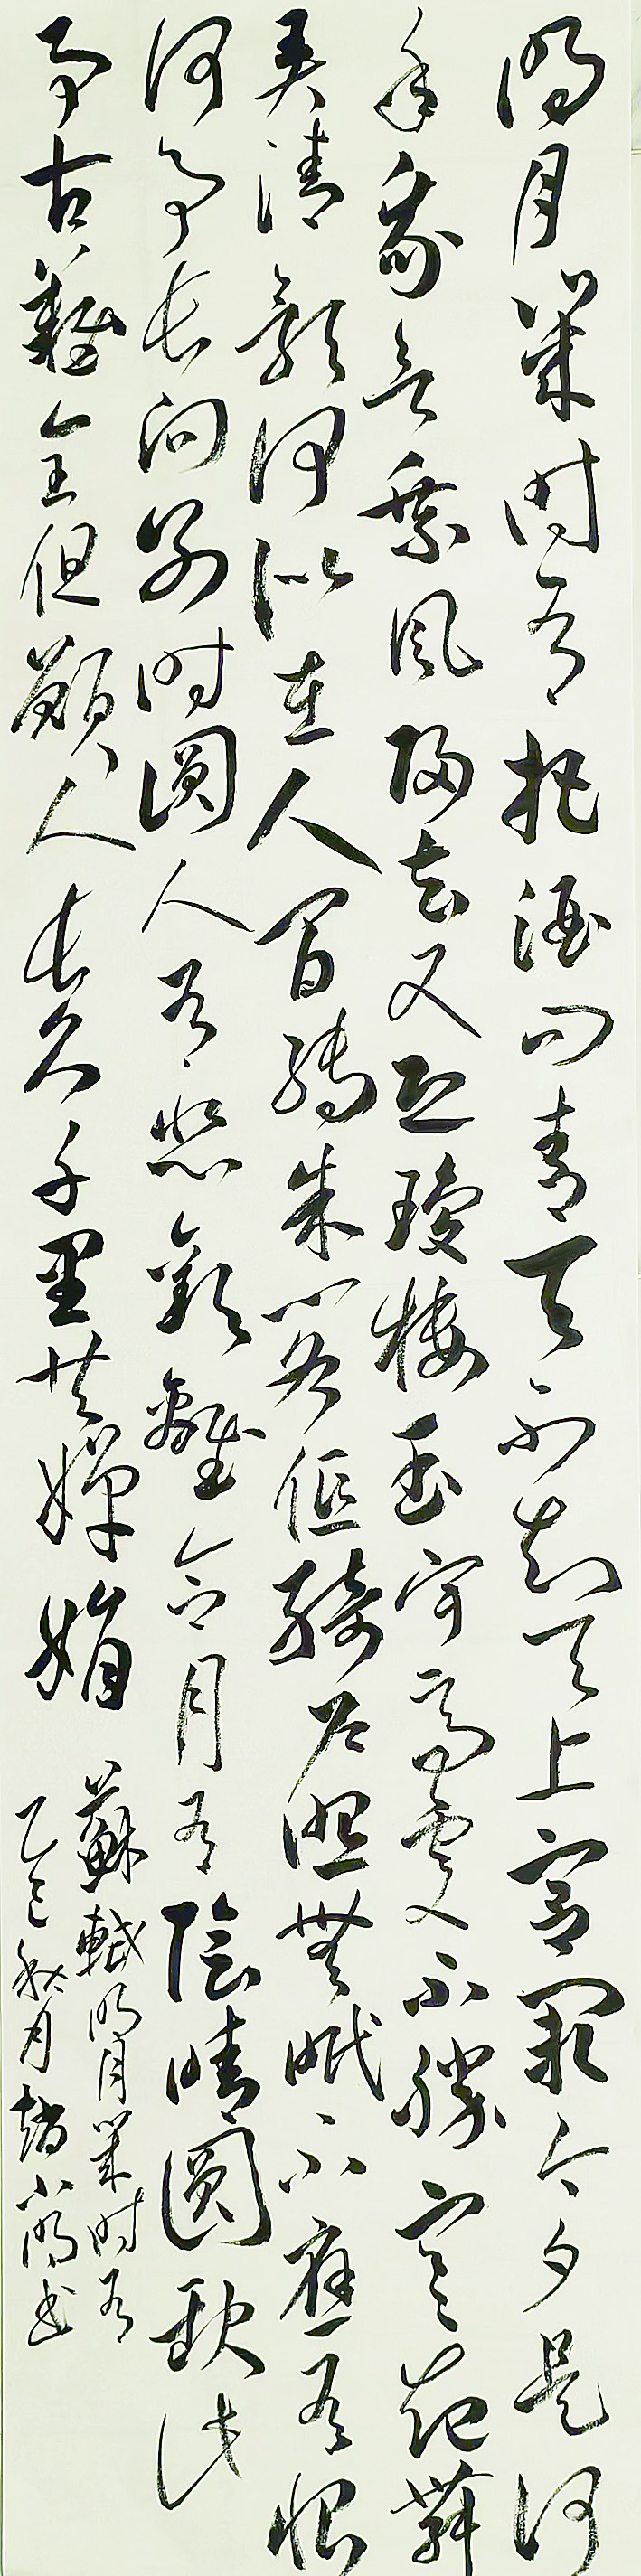 明月幾時有把酒問青天不知天上宮闕今夕是何
年我欲乘風歸去又恐瓊樓玉宇高處不勝寒起舞
弄清影何似在人間轉朱閣低綺户照無眠不應有恨
何事長向別時圓人有悲歡離合月有陰晴圓缺此
事古難全但願人長久千里共嬋娟
蘇軾明月幾時有
乙巳秋月小明書